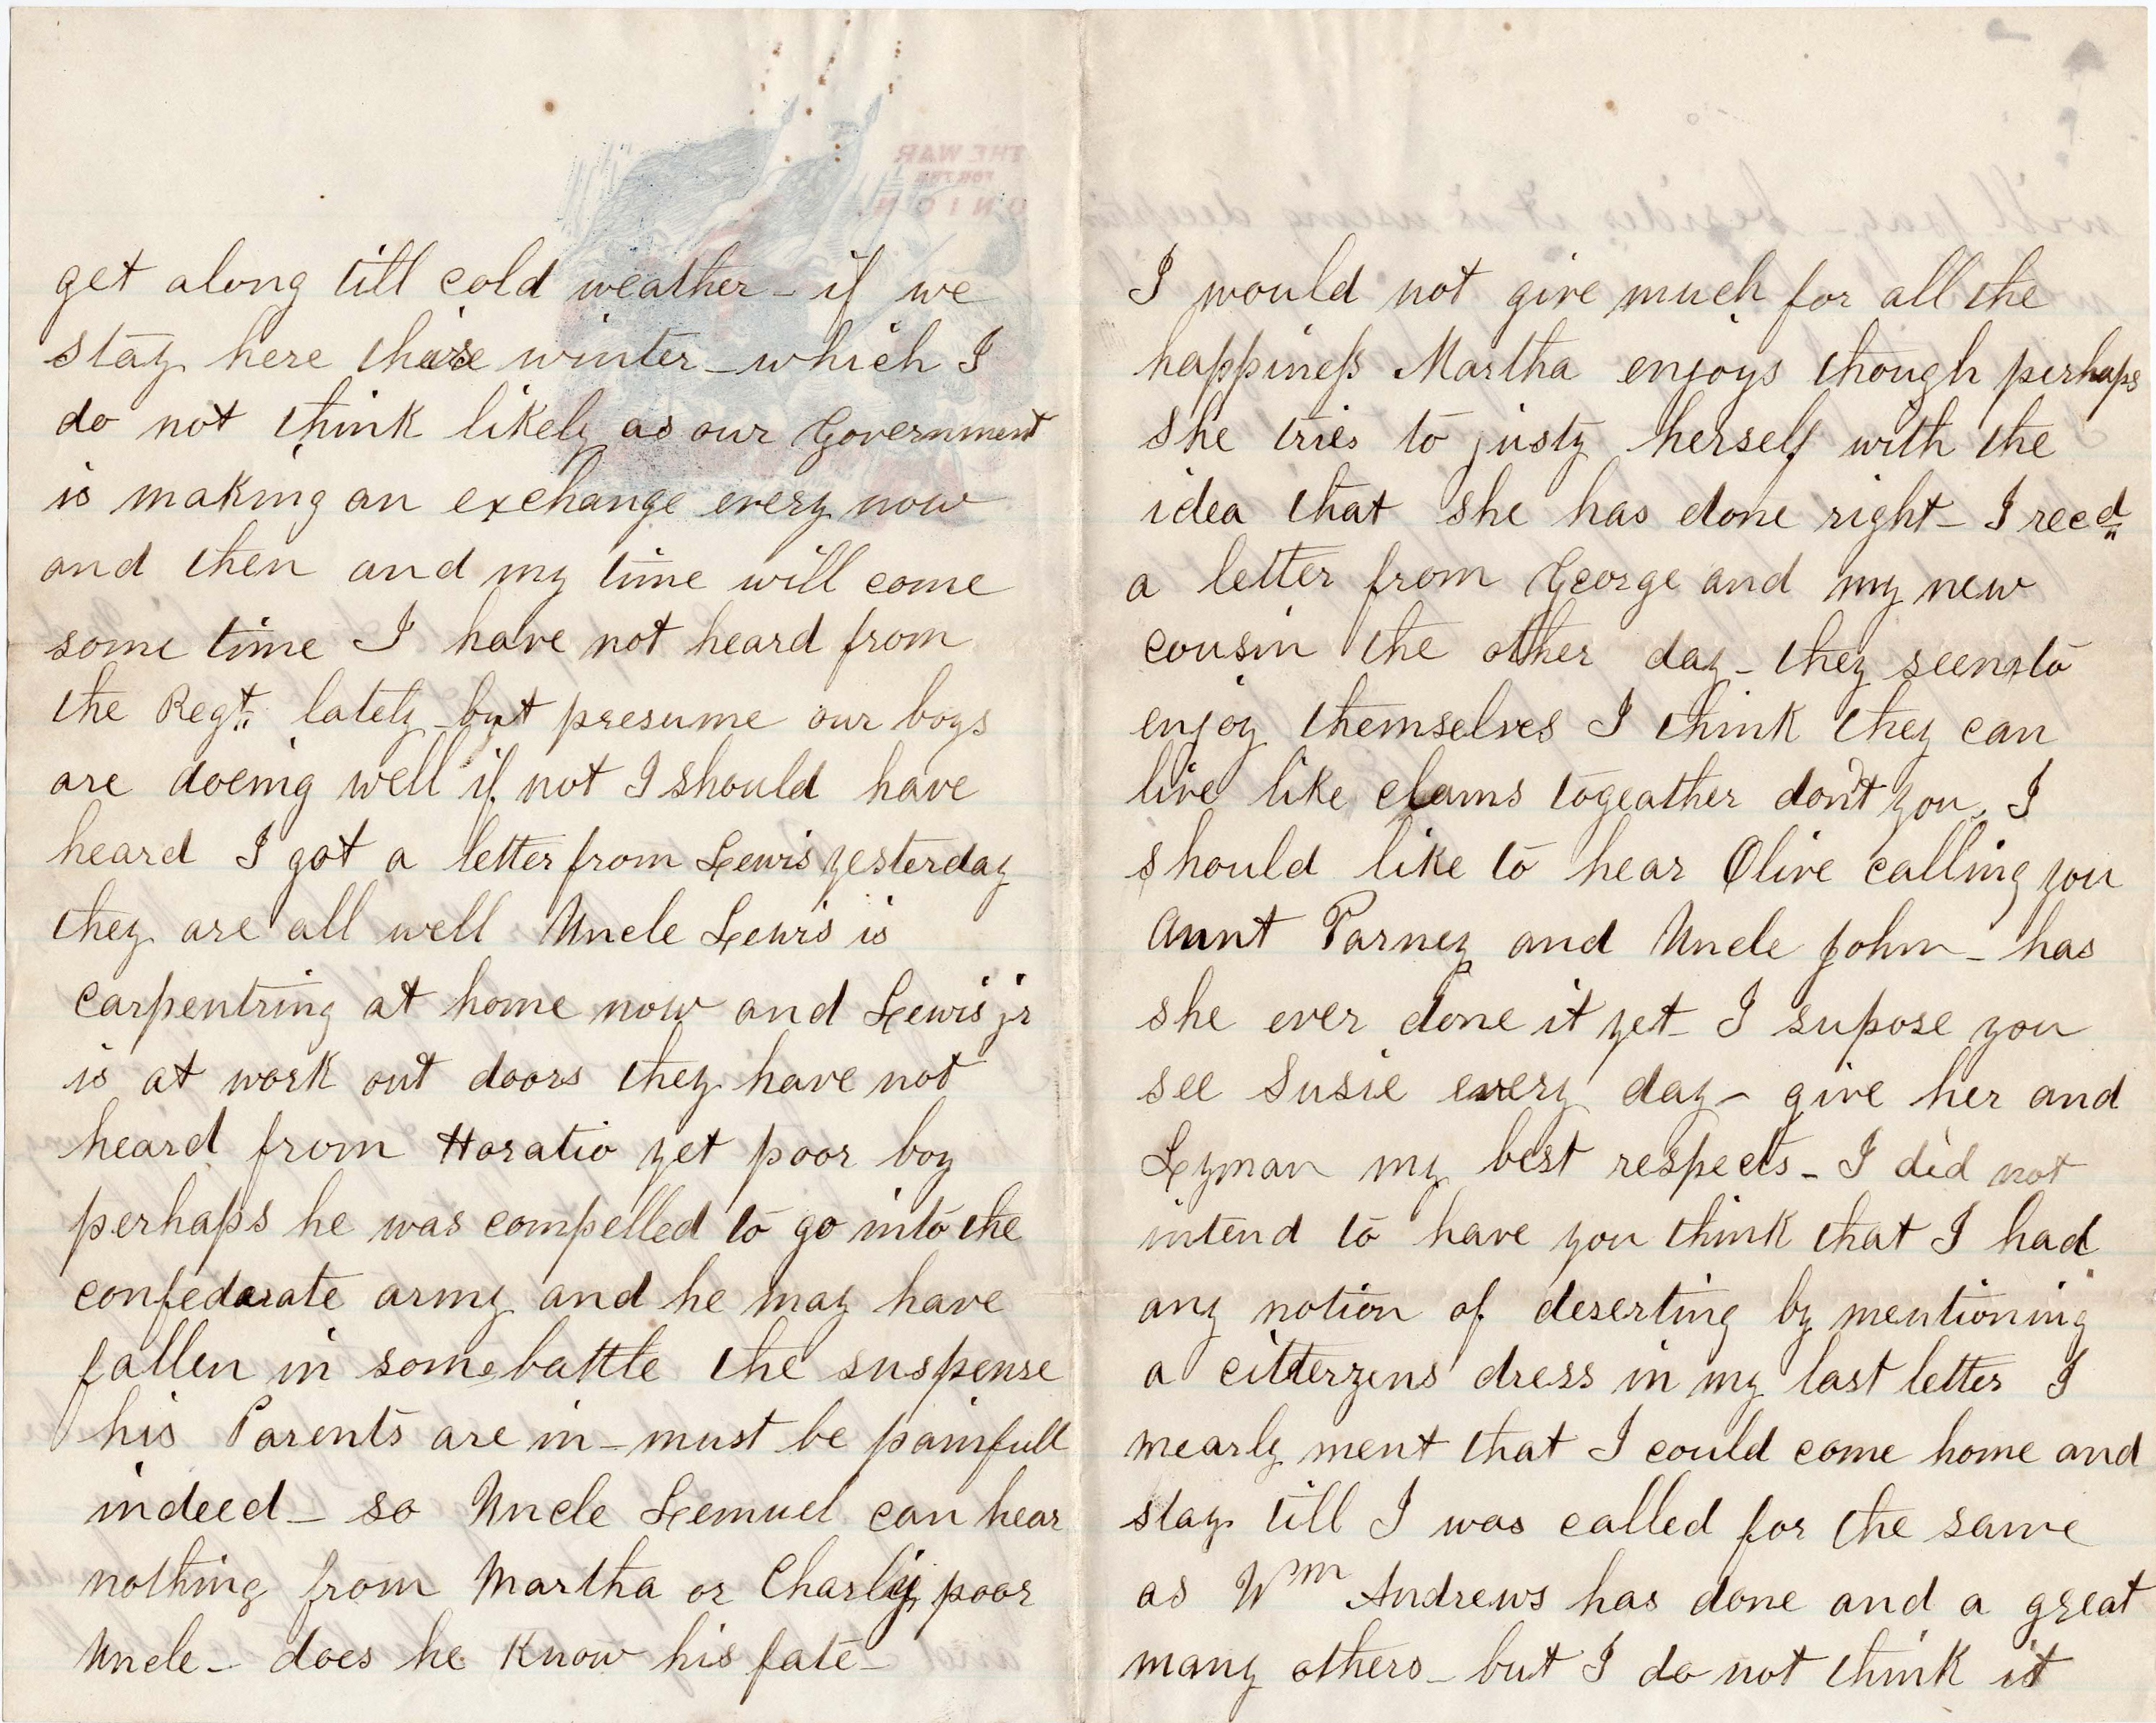 get along till cold weather – if we
stay here there winter – which I
do not think likely as our Government
is making an exchange every now
and then and my time will come
some time I have not heard from
the Regt. lately – but presume our boys
are doeing well if not I should have
heard I got a letter from Lewis yesterday
they are all well Uncle Lewis is
carpentring at home now and Lewis jr
is at work out doors they have not
heard from Horatio yet poor boy
perhaps he was compelled to go into the
confedarate army and he may have
fallen in some battle the suspense
his Parents are in – must be painfull
indeed – so Uncle Lemuel can hear
nothing from Martha or Charly poor
Uncle – does he know his fate –
I would not give much for all the
happiness Martha enjoys though perhaps
she tries to justy herself with the
idea that she has done right – I recd
a letter from George and my new
cousin the other day – they seem to
enjoy themselves I think they can
live like clams togeather don't you I
should like to hear Olive calling you
Aunt Parney and Uncle John – has
she ever done it yet – I supose you
see Susie every day – give her and
Lyman my best respects – I did not
intend to have you think that I had
any notion of deserting by mentioning
a citterzens dress in my last letter I
mearly ment that I could come home and
stay till I was called for the same
as Wm Andrews has done and a great
many others – but I do not think it
THE WAR
FOR THE
UNION